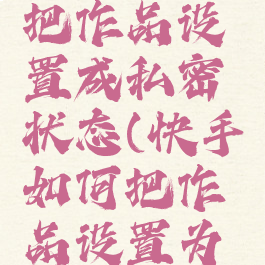 把作品设
置成私密
状态(快手
如何把作
品设置为